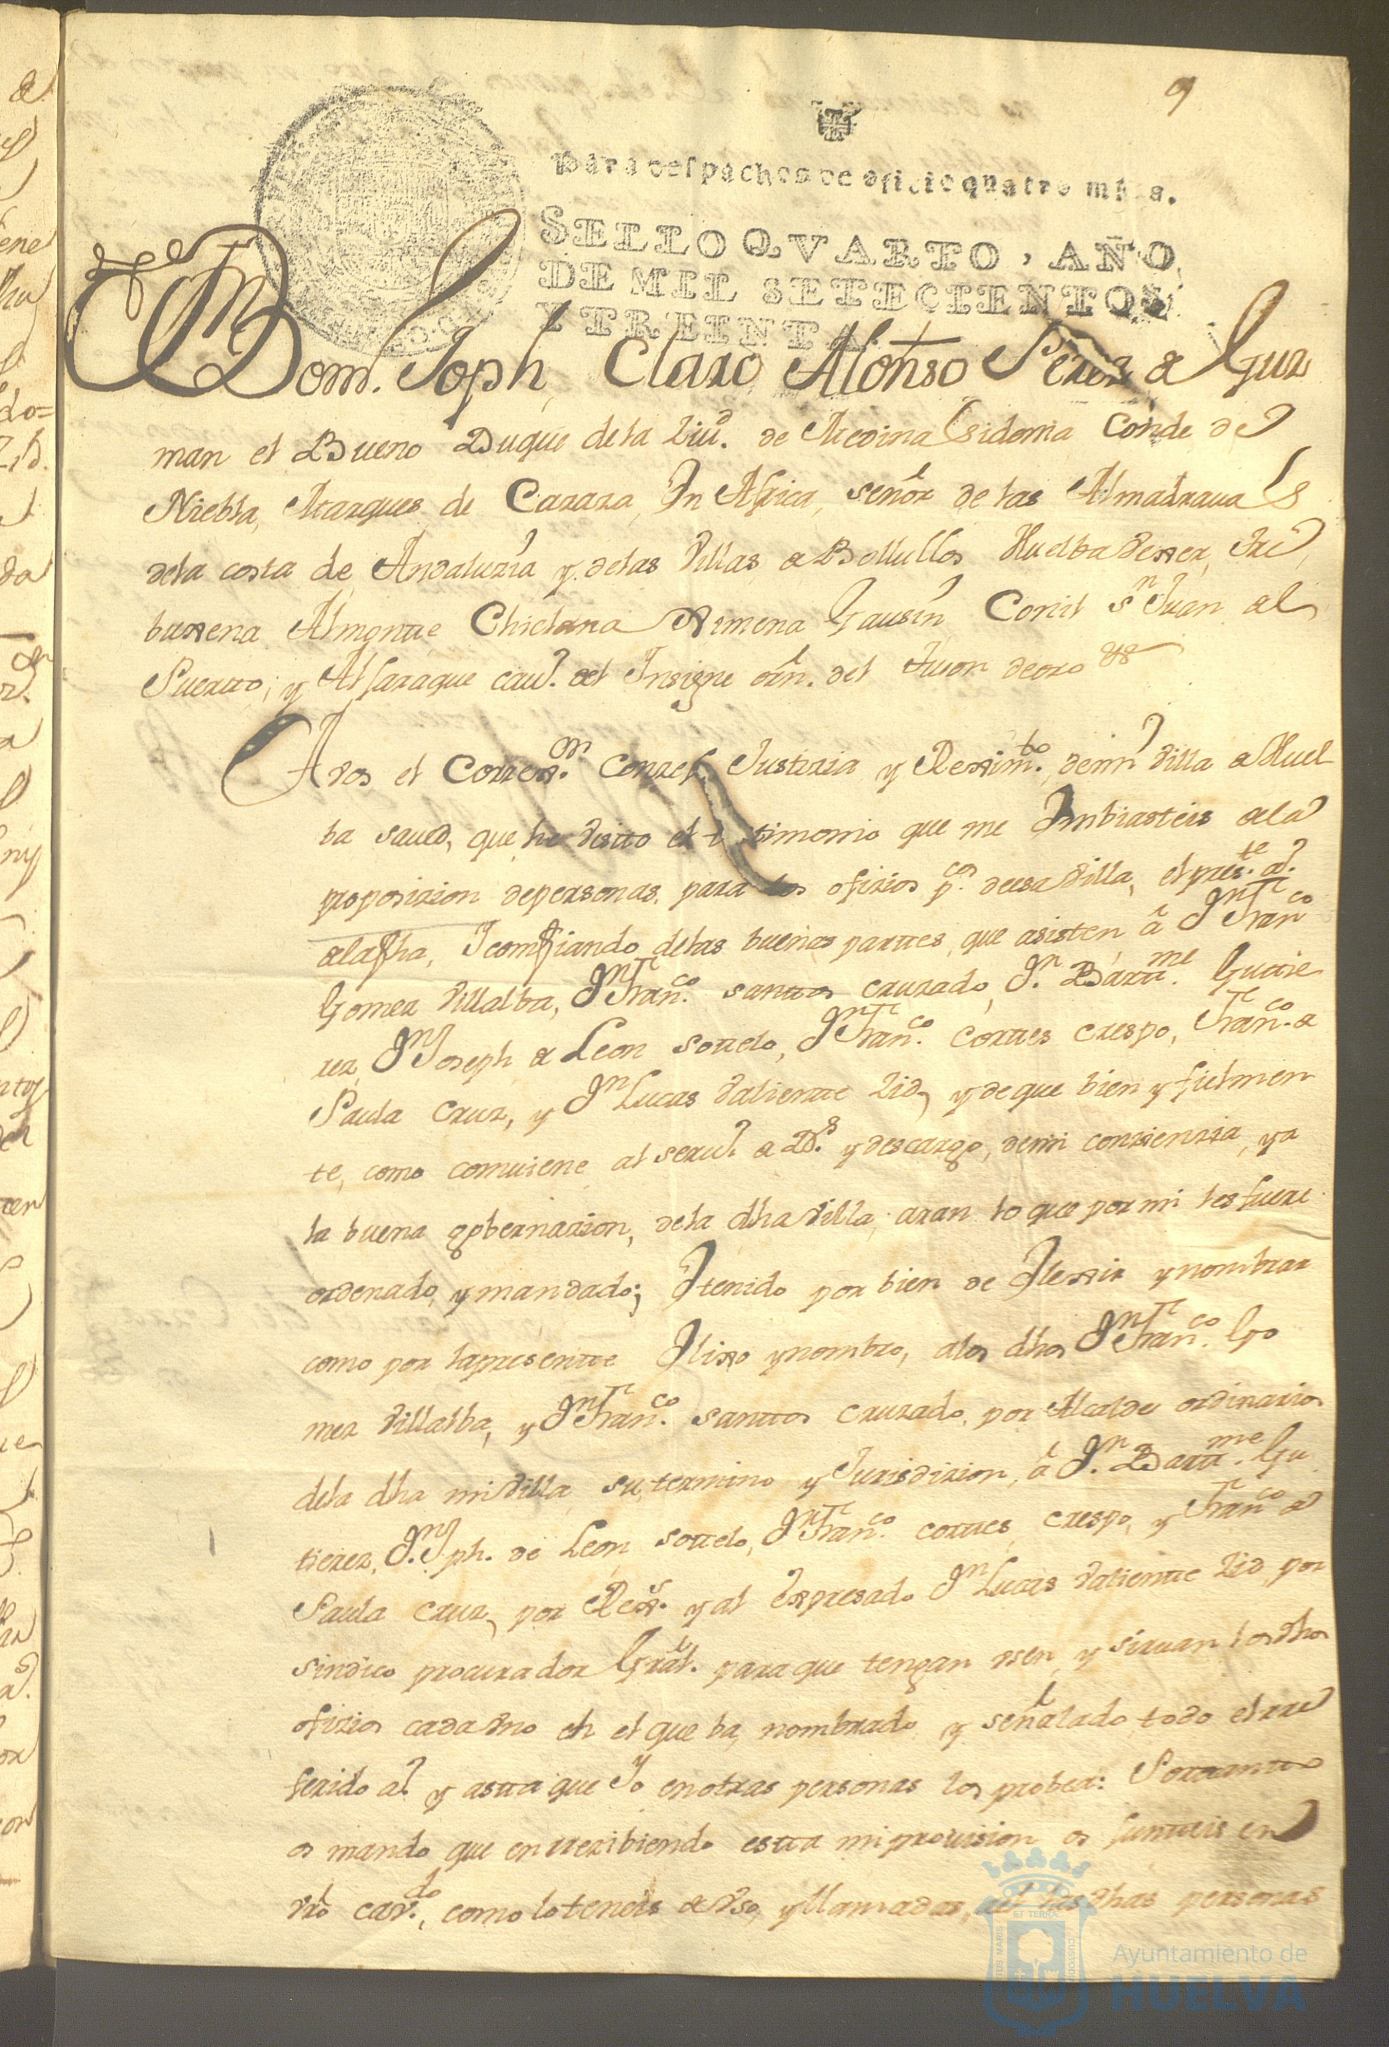 9
Para despachos de oficio quatro mrs.
SELLO QVARTO, AÑO
DE MIL SETECIENTOS
Y TREINTA
Don Joph Claro Alonso Perez de Guz
man el Bueno Duque de la Ziud. de Medina Sidonia Conde de
Niebla, Marques de Cazaza, In Africa, señor de las Almadravas
dela costa de Andaluzia y delas Villas de Bollullos Huelba dexer, Tre
buxena Almonte Chiclana Ximena Gausin, Conil Sn Juan del
Puerto, y Alfaraque cauo. del Insigne orn. del tuson de oro &&
A vos el Correxor. Conzejo Justizia y Reximto. demi Villa de Huel
ba saued, que he visto el testimonio que me Imbiasteis de la
proposizion de personas para los ofizios pcos. de esa Villa, el preste. a.
de la fha, I confiando delas buenas partes, que asisten â Dn Franco
Gomez Villalba, Dn Franco. santtos cruzado, Dn. Bartme. Gutie
rrez, Dn Joseph de Leon Sottelo, Dn Franco. Corttes crespo, Franco. de
Paula Cruz, y Dn Lucas Valientte Zid, y de que bien y fielmen
te, como comuiene al seruo. de Ds. y descargo, de mi conzienzia, y a
la buena gobernazion, dela dha Villa, aran lo que por mi les fuere
ordenado, y mandado; I tenido por bien de Ilexir y nombrar
como por la presentte Ilixo y nombro, alos dhos Dn Franco. Go
mez Villalba, y Dn Franco. santtos Cruzado, por Alcaldes ordinarios
dela dha mi Villa su termino y Jurisdizion, â Dn. Bartme. Gu
tierez, Dn. Jph. de Leon Sottelo, Dn Franco. corttes crespo, y Franco de
Paula Cruz, por Rexs. y al Expresado Dn Lucas Valientte Zid por
sindico procurador Gral. para que tengan vsen, y siruan los dhos
ofizios cada vno en el que ba, nombrado, y señalado, todo el rre
ferido a. y astta que Yo en otras personas los probea: Porttantto
os mando que en rrezibiendo estta mi prouision os juntteis en
vro cauo., como lo teneis de vso, y llamadas, las dhas personas
Ayuntamiento de
HUELVA